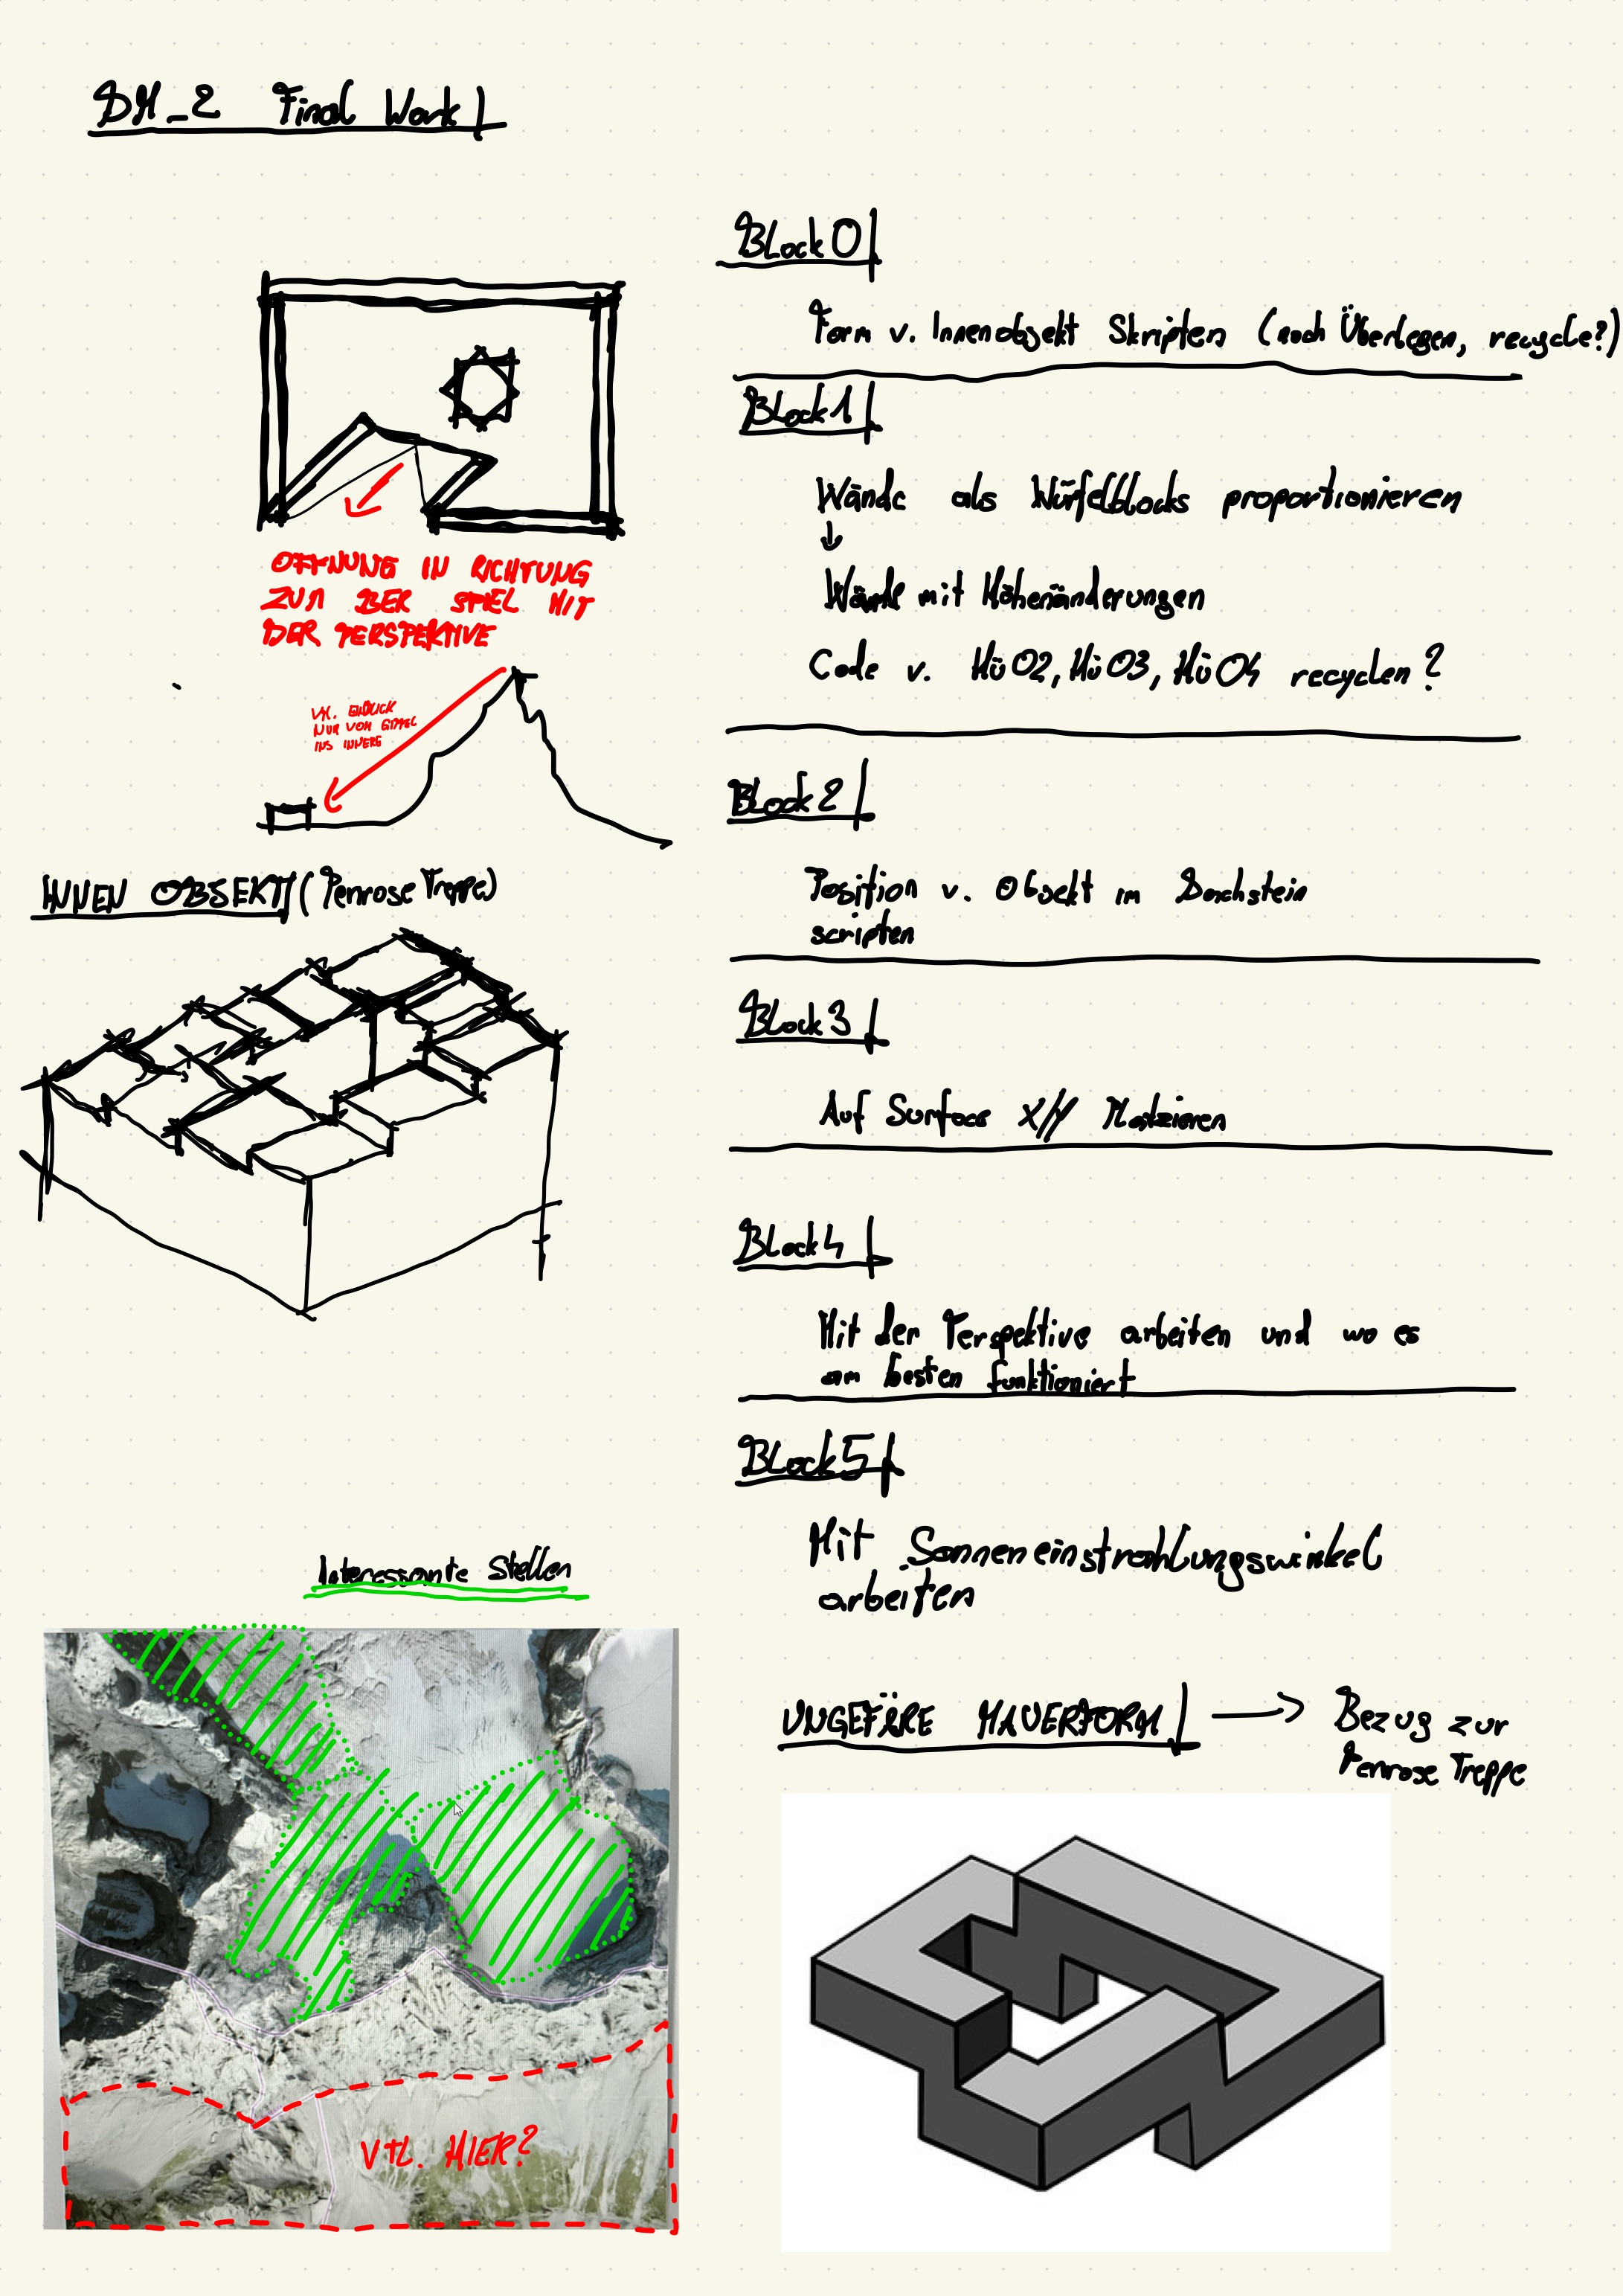 DM_2 Final Work
ÖFFNUNG IN RICHTUNG
ZUM BER SPIEL MIT
DER PERSPEKTIVE
Vtl. EINBLICK
NUR VOM GIPFEL
INS INNERE
INNEN OBJEKT (Penrose Treppe)
Interessante Stellen
Vtl. HIER?
Block 0
Form v. Innenobjekt Skripten (noch Überlegen, recycle?)
Block 1
Wände als Würfelblocks proportionieren
↓
Wände mit Höhenänderungen
Code v. HÜ02, HÜ03, HÜ04 recyclen?
Block 2
Position v. Objekt im Dachstein
scripten
Block 3
Auf Surface X/Y Platzieren
Block 4
Mit der Perspektive arbeiten und wo es
am besten funktioniert
Block 5
Mit Sonneneinstrahlungswinkel
arbeiten
UNGEFÄRE MAUERFORM → Bezug zur
Penrose Treppe